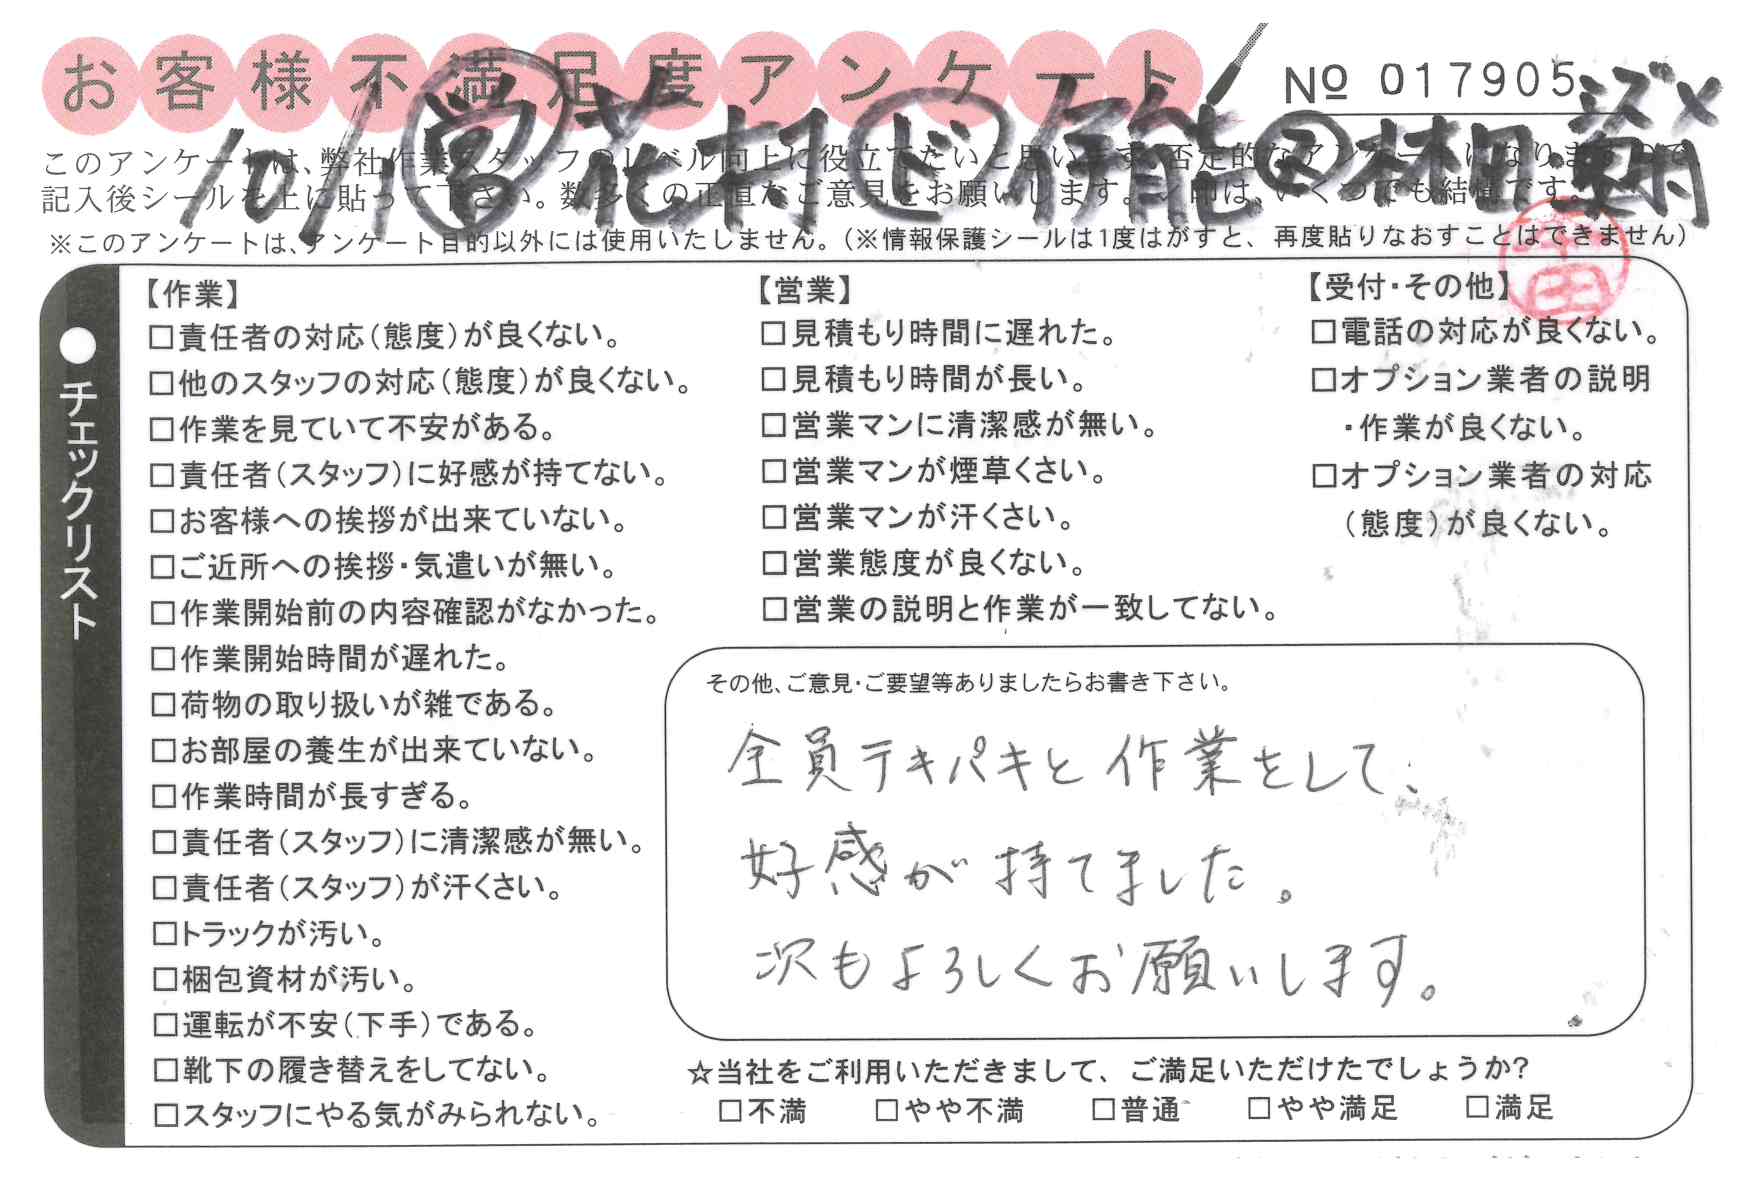 お客様不満足度アンケート
№ 017905
10/1 営 花村 ド 仔能 ス 林田
このアンケートは、弊社作業スタッフのレベル向上に役立てたいと思います。否定的なアンケートになりますので、
記入後シールを上に貼って下さい。数多くの正直なご意見をお願いします。✓印は、いくつでも結構です。
※このアンケートは、アンケート目的以外には使用いたしません。（※情報保護シールは1度はがすと、再度貼りなおすことはできません）
チェックリスト
【作業】
□責任者の対応（態度）が良くない。
□他のスタッフの対応（態度）が良くない。
□作業を見ていて不安がある。
□責任者（スタッフ）に好感が持てない。
□お客様への挨拶が出来ていない。
□ご近所への挨拶・気遣いが無い。
□作業開始前の内容確認がなかった。
□作業開始時間が遅れた。
□荷物の取り扱いが雑である。
□お部屋の養生が出来ていない。
□作業時間が長すぎる。
□責任者（スタッフ）に清潔感が無い。
□責任者（スタッフ）が汗くさい。
□トラックが汚い。
□梱包資材が汚い。
□運転が不安（下手）である。
□靴下の履き替えをしてない。
□スタッフにやる気がみられない。
【営業】
□見積もり時間に遅れた。
□見積もり時間が長い。
□営業マンに清潔感が無い。
□営業マンが煙草くさい。
□営業マンが汗くさい。
□営業態度が良くない。
□営業の説明と作業が一致してない。
【受付・その他】
□電話の対応が良くない。
□オプション業者の説明
・作業が良くない。
□オプション業者の対応
（態度）が良くない。
その他、ご意見・ご要望等ありましたらお書き下さい。
全員テキパキと作業をして、
好感が持てました。
次もよろしくお願いします。
☆当社をご利用いただきまして、ご満足いただけたでしょうか？
□不満 □やや不満 □普通 □やや満足 □満足